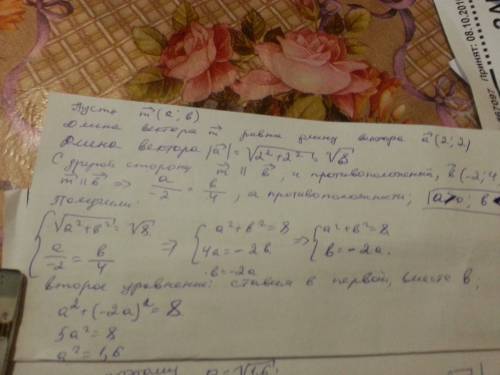 Пусть m⃗ (a; b)
Длина вектора m⃗ равна длину вектора a⃗ (2; 2)
Длина вектора |a⃗| = √(2²+2²) = √8
С другой стороны m⃗ ∥ b⃗, и противоположений, b⃗ (-2; 4
m⃗ ∥ b⃗ ⇒ a/-2 = b/4, а противоположности;
Получим:
{ √(a²+b²) = √8, a/-2 = b/4 ⇒ { a²+b²=8, 4a=-2b, b=-2a ⇒ { a²+b²=8, b=-2a.
второе уравнение: ставим в первой, вместо b,
a²+(-2a)²=8
5a²=8
a²=1,6
принят: 08.10.201